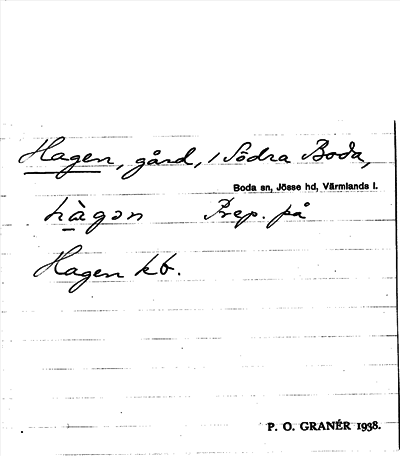 Hagen, gård, i Södra Boda,
Boda sn, Jösse hd, Värmlands l.
hàgən Prep. på
Hagen kb.
P. O. GRANÉR 1938.